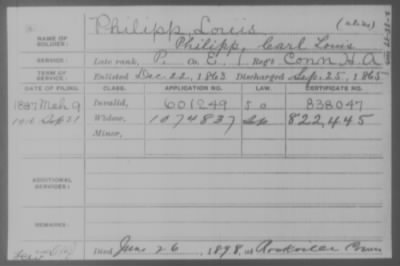 NAME OF SOLDIER: Philipp, Louis (alias)
Philipp, Carl Louis
SERVICE: Late rank, P. Co. E, 1 Reg't Conn. H. A.
TERM OF SERVICE: Enlisted Dec. 22, 1863 Discharged Sep. 25, 1865
DATE OF FILING. CLASS. APPLICATION NO. LAW. CERTIFICATE NO.
1887 Mch 9 Invalid, 601249 838047
1916 Sep 21 Widow, 1074837 822,445
Minor,
ADDITIONAL SERVICES:
REMARKS:
Died June 26, 1898, at Rockville Conn